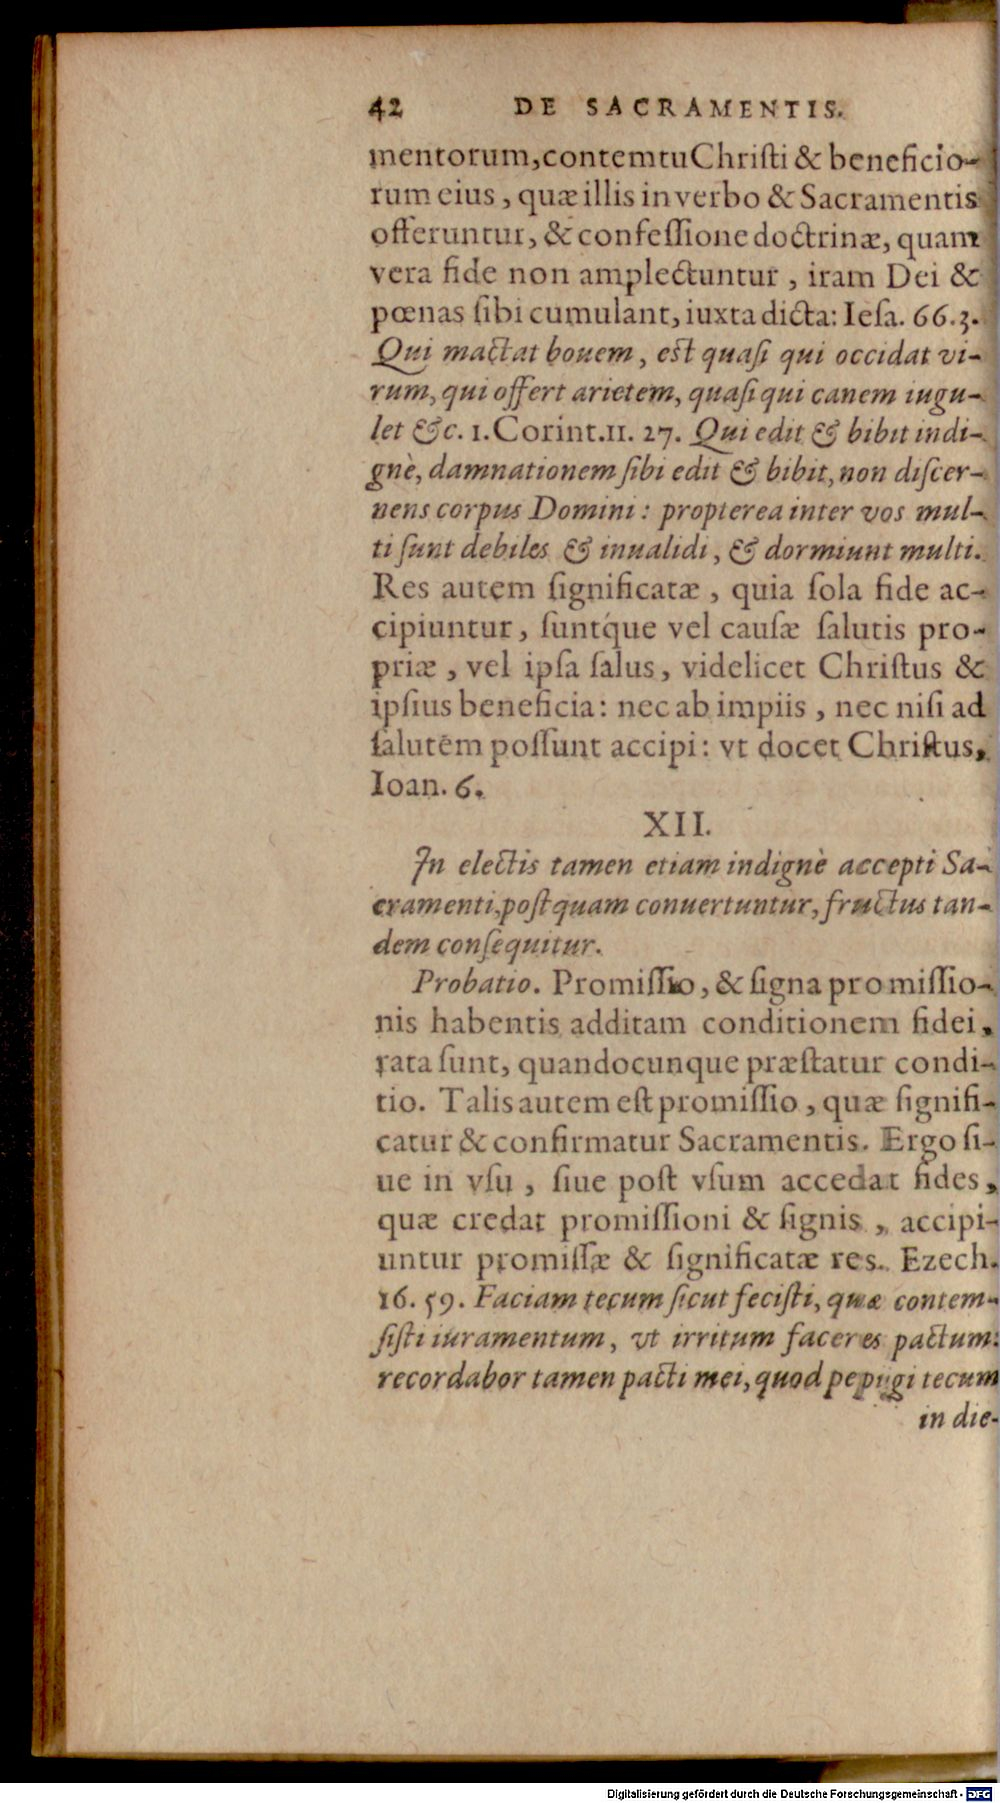 42 DE SACRAMENTIS.
mentorum, contemtu Chriſti & beneficio-
rum eius, quæ illis in verbo & Sacramentis
offeruntur, & confeſſione doctrinæ, quam
vera fide non amplectuntur, iram Dei &
pœnas ſibi cumulant, iuxta dicta: Ieſa. 66.3.
Qui mactat bouem, eſt quaſi qui occidat vi-
rum, qui offert arietem, quaſi qui canem iugu-
let &c. 1. Corint. 11. 27. Qui edit & bibit indi-
gnè, damnationem ſibi edit & bibit, non diſcer-
nens corpus Domini: propterea inter vos mul-
ti ſunt debiles & inualidi, & dormiunt multi.
Res autem ſignificatæ, quia ſola fide ac-
cipiuntur, ſuntq́ue vel cauſæ ſalutis pro-
priæ, vel ipſa ſalus, videlicet Chriſtus &
ipſius beneficia: nec ab impiis, nec niſi ad
ſalutem poſſunt accipi: vt docet Chriſtus,
Ioan. 6.
XII.
In electis tamen etiam indignè accepti Sa-
cramenti, poſtquam conuertuntur, fructus tan-
dem conſequitur.
Probatio. Promiſſio, & ſigna promiſſio-
nis habentis additam conditionem fidei,
rata ſunt, quandocunque præſtatur condi-
tio. Talis autem eſt promiſſio, quæ ſignifi-
catur & confirmatur Sacramentis. Ergo ſi-
ue in vſu, ſiue poſt vſum accedat fides,
quæ credat promiſſioni & ſignis, accipi-
untur promiſſæ & ſignificatæ res. Ezech.
16. 59. Faciam tecum ſicut feciſti, quæ contem-
ſiſti iuramentum, vt irritum faceres pactum:
recordabor tamen pacti mei, quod pepigi tecum
in die-
Digitalisierung gefördert durch die Deutsche Forschungsgemeinschaft - DFG